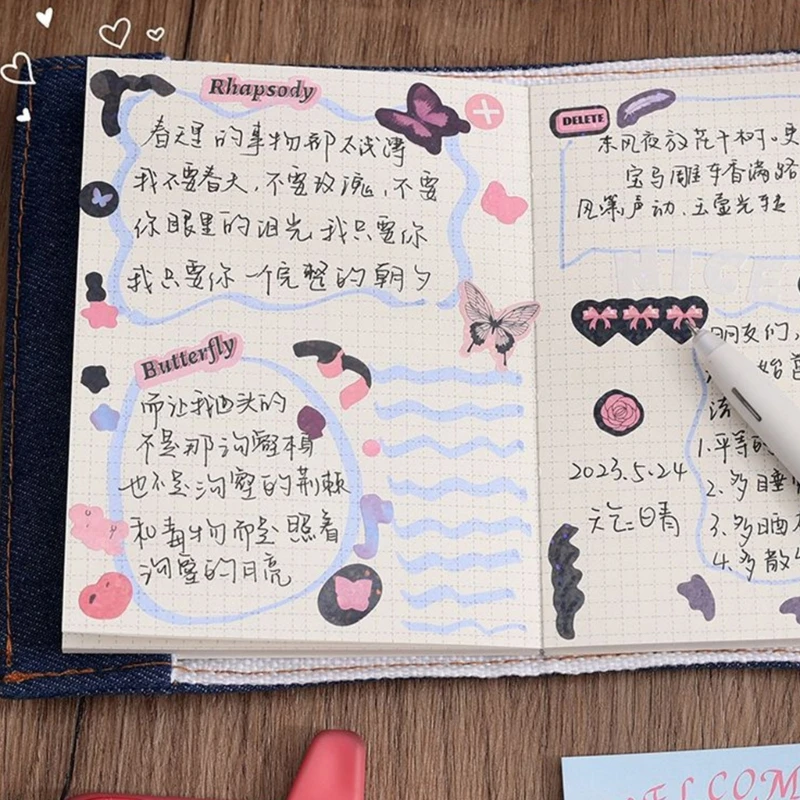 Rhapsody
春天里的事物都太浅薄
我不要春天,不要玫瑰,不要
你眼里的泪光,我只要你
我只要你一个完整的朝夕
Butterfly
而让我回头的
不是那沟壑
也不是沟壑的荆棘
和毒物而是照着
沟壑的月亮
DELETE
东风夜放花千树.更
宝马雕车香满路
风箫声动、玉壶光转
NICE
朋友们,
始营
2023.5.24
天气:晴
1.平等的
2.多睡
3.多晒
4.多散
WELCOME